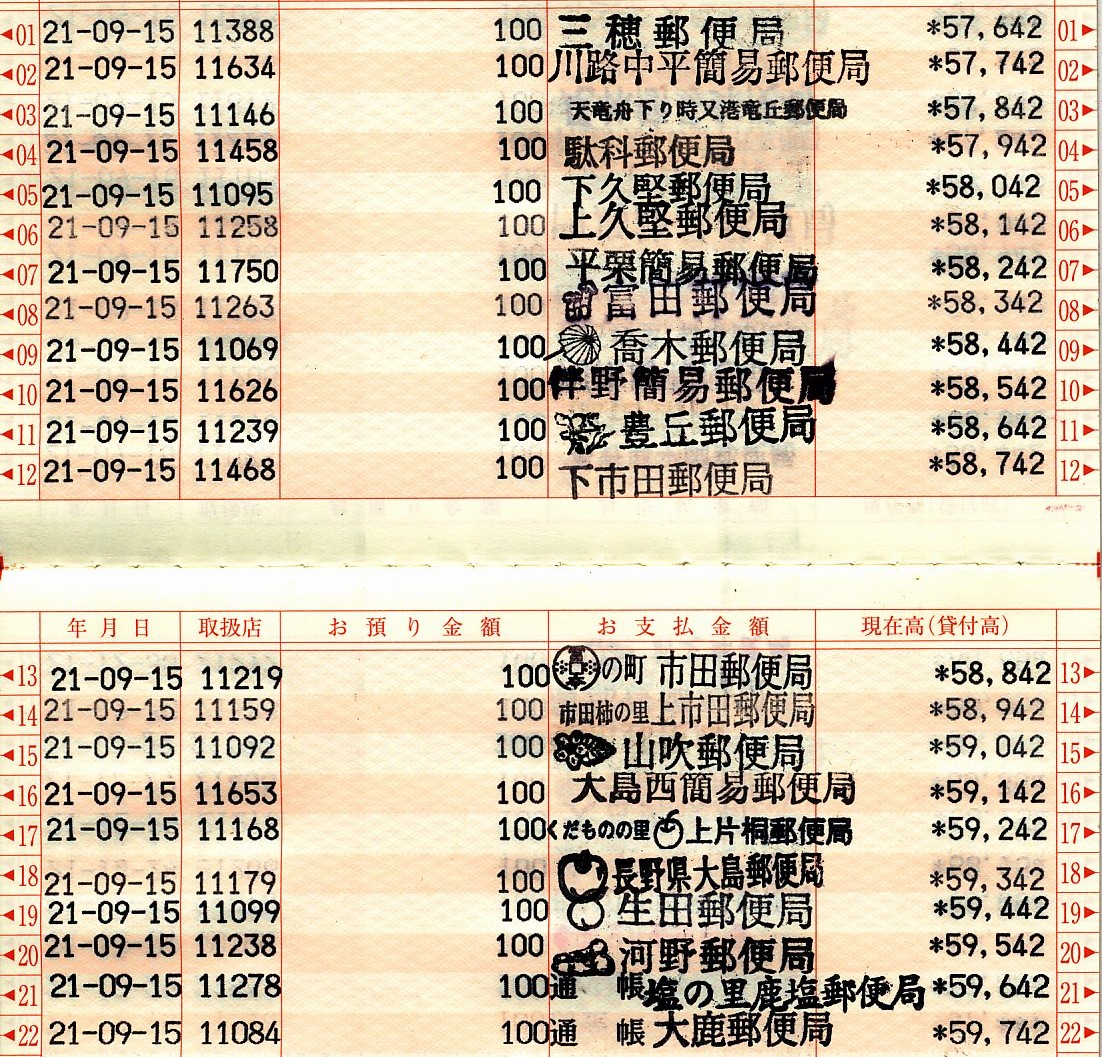 ◀01 21-09-15 11388 100 三穂郵便局 *57,642 01▶
◀02 21-09-15 11634 100 川路中平簡易郵便局 *57,742 02▶
◀03 21-09-15 11146 100 天竜舟下り時又港竜丘郵便局 *57,842 03▶
◀04 21-09-15 11458 100 駄科郵便局 *57,942 04▶
◀05 21-09-15 11095 100 下久堅郵便局 *58,042 05▶
◀06 21-09-15 11258 100 上久堅郵便局 *58,142 06▶
◀07 21-09-15 11750 100 平栗簡易郵便局 *58,242 07▶
◀08 21-09-15 11263 100 富田郵便局 *58,342 08▶
◀09 21-09-15 11069 100 喬木郵便局 *58,442 09▶
◀10 21-09-15 11626 100 伴野簡易郵便局 *58,542 10▶
◀11 21-09-15 11239 100 豊丘郵便局 *58,642 11▶
◀12 21-09-15 11468 100 下市田郵便局 *58,742 12▶
年月日 取扱店 お預り金額 お支払金額 現在高(貸付高)
◀13 21-09-15 11219 100 の町 市田郵便局 *58,842 13▶
◀14 21-09-15 11159 100 市田柿の里上市田郵便局 *58,942 14▶
◀15 21-09-15 11092 100 山吹郵便局 *59,042 15▶
◀16 21-09-15 11653 100 大島西簡易郵便局 *59,142 16▶
◀17 21-09-15 11168 100 くだものの里 上片桐郵便局 *59,242 17▶
◀18 21-09-15 11179 100 長野県大島郵便局 *59,342 18▶
◀19 21-09-15 11099 100 生田郵便局 *59,442 19▶
◀20 21-09-15 11238 100 河野郵便局 *59,542 20▶
◀21 21-09-15 11278 100 通 帳 塩の里鹿塩郵便局 *59,642 21▶
◀22 21-09-15 11084 100 通 帳 大鹿郵便局 *59,742 22▶